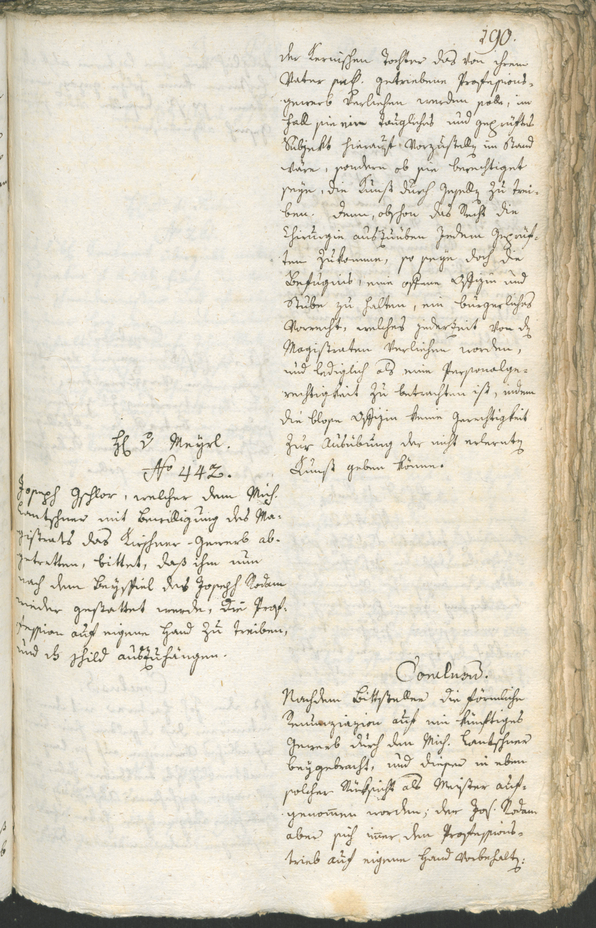 190.
der Kernischen Tochter das von ihrem
Vater sel. getriebene Professions-
gewerb verliehen werden solle, im
Fall sie ein taugliches und geprüftes
Subjekt hierauf vorzustellen im Stand
wäre, sondern ob sie berechtiget
seye, die Kunst durch Gesellen zu trei-
ben. Denn, obschon das Recht die
Chirurgie auszuüben jedem Geprüf-
ten zukomme, so seye doch die
Befugnis, eine offene Offizin und
Stube zu halten, ein bürgerliches
Vorrecht, welches jederzeit von den
Magistraten verliehen worden,
und lediglich als eine Personalge-
rechtigkeit zu betrachten ist, indem
die blose Offizin keine Gerechtigkeit
zur Ausübung der nicht erlernten
Kunst geben könne.
Meyrl.
No 442.
Joseph Gschlor, welcher dem Mich.
Lantschner mit Bewilligung des Ma-
gistrats das Kirschner-Gewerb ab-
getretten, bittet, daß ihm nun
nach dem Beyspiel des Joseph Rodam
wieder gestattet werde, die Prof-
fession auf eigene Hand zu treiben,
und das Schild auszuhängen.
Conclusum.
Nachdem Bittsteller die förmliche
Renunziazion auf ein künftiges
Gewerb durch den Mich. Lantschner
beygebracht, und dieser in eben
solcher Rücksicht als Meister auf-
genommen worden; der Jos. Rodam
aber sich immer den Professions-
trieb auf eigene Hand vorbehalten;